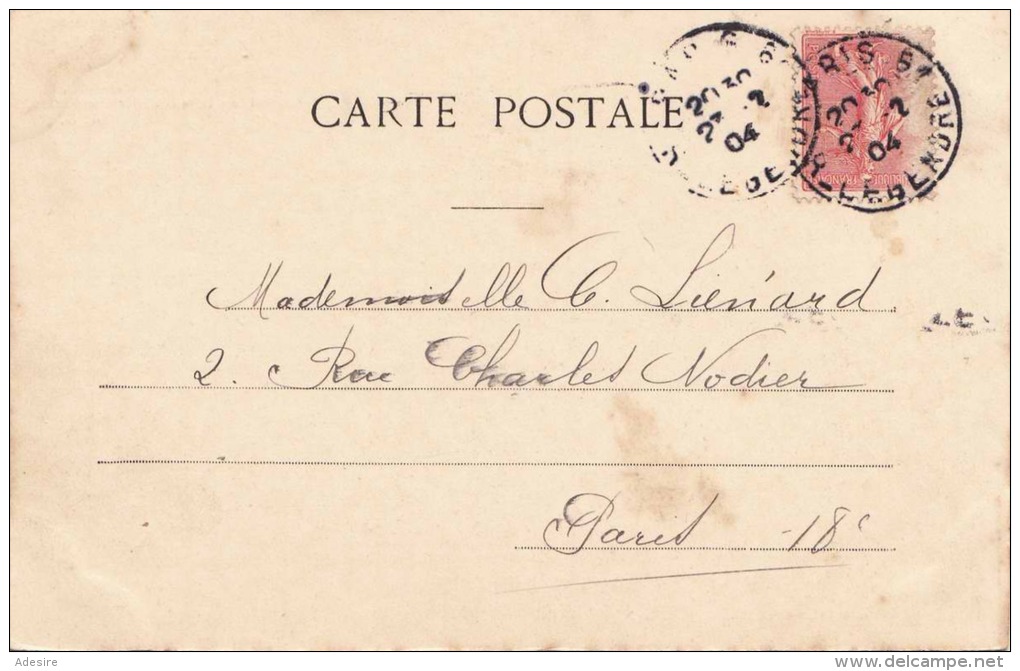 CARTE POSTALE
PARIS 61
20 30
2
04
R. LEGENDRE
Mademoiselle C. Liénard
2. Rue Charles Nodier
Paris 18e
LE
Adesire
www.delcampe.net